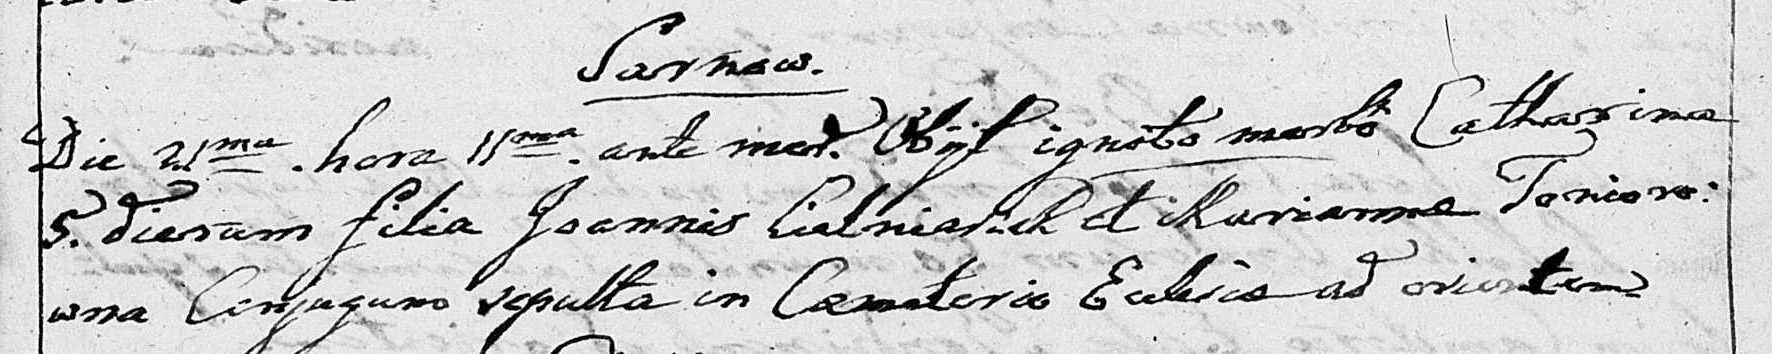 Sarnow.
Die 21ma. hora 11ma. ante mer. Obijt ignoto morbo Catharina
5. dierum filia Joannis et Marianna
Conjugum sepulta in Cæmeterio Eclesie ad orientem